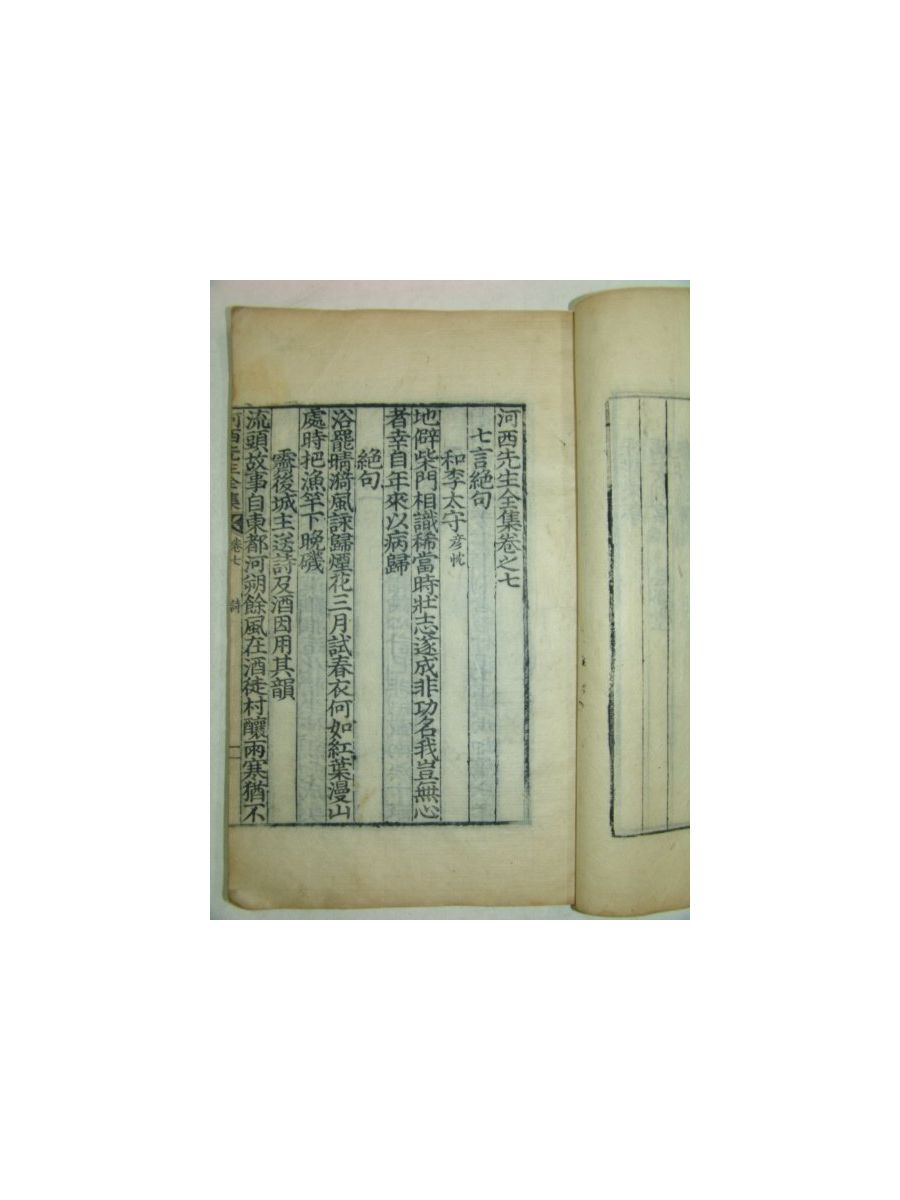 河西先生全集卷之七
七言絶句
和李太守彦忱
地僻柴門相識稀當時壯志遂成非功名我豈無心
者幸自年來以病歸
絶句
浴罷晴漪風詠歸煙花三月試春衣何如紅葉漫山
處時把漁竿下晩磯
霽後城主送詩及酒因用其韻
流頭故事自東都河朔餘風在酒徒村釀雨寒猶不
河西先生全集 卷七 詩 一